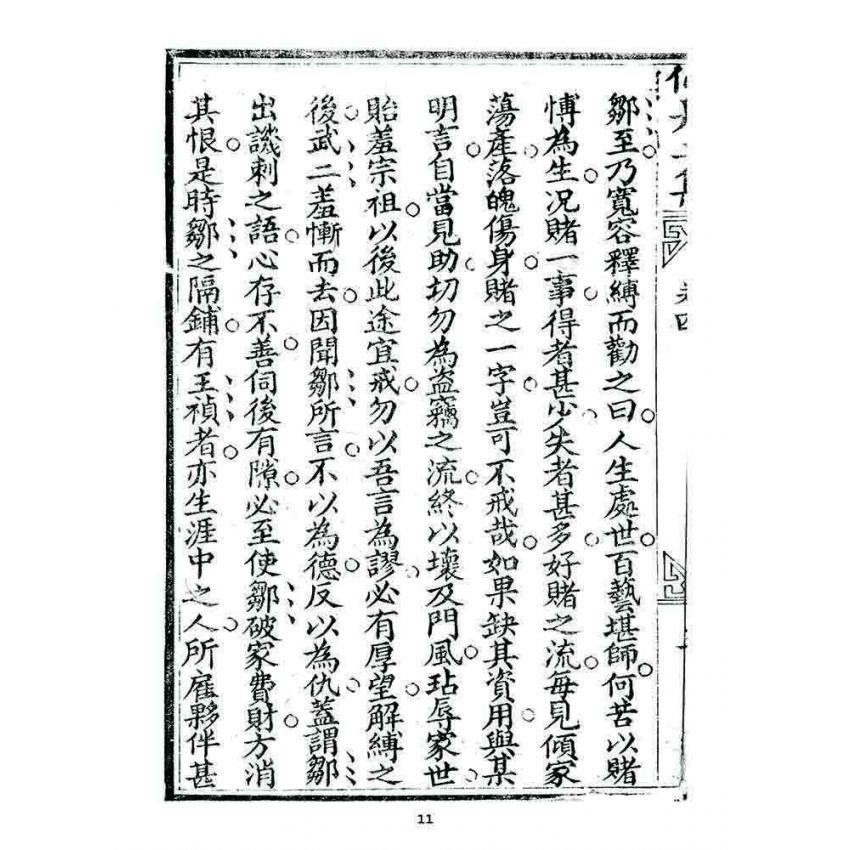 卷四
鄒至乃寬容釋縛而勸之曰人生處世百藝堪師何苦以賭
愽為生况賭一事得者甚少失者甚多好賭之流每見傾家
蕩產落魄傷身賭之一字豈可不戒哉如果缺其資用與某
明言自當見助切勿為盗竊之流終以壞及門風玷辱家世
貽羞宗祖以後此途宜戒勿以吾言為謬必有厚望解縛之
後武二羞慚而去因聞鄒所言不以為德反以為仇蓋謂鄒
出譏刺之語心存不善伺後有隙必至使鄒破家費財方消
其恨是時鄒之隔鋪有王禎者亦生涯中之人所雇夥伴甚
11